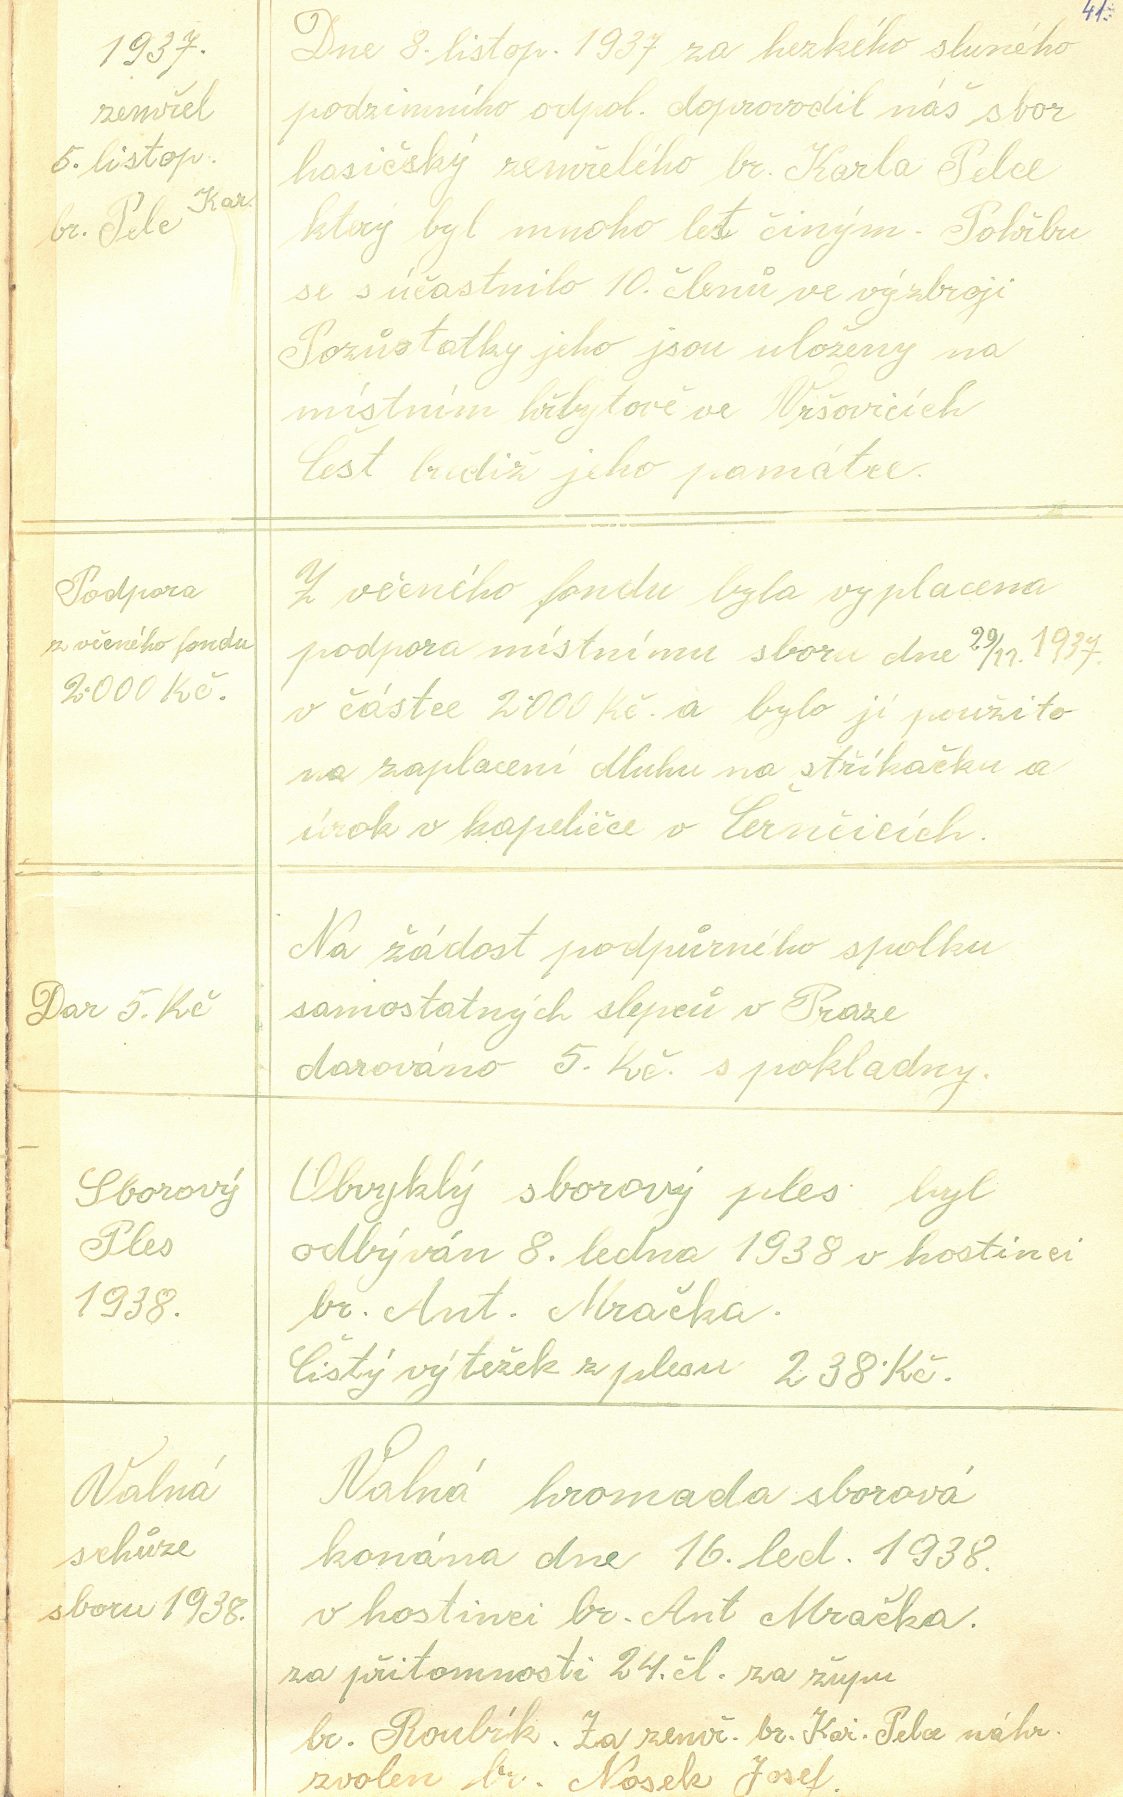 41.
1937.
zemřel
5. listop.
br. Pelc Kar.
Dne 8. listop. 1937 za hezkého sluného
podzimního odpol. doprovodil náš sbor
hasičský zemřelého br. Karla Pelce
který byl mnoho let činým. Pohřbu
se súčastnilo 10. členů ve výzbroji
Pozůstatky jeho jsou uloženy na
místním hřbytově ve Vršovicích
Čest budiž jeho památce.
Podpora
z věčného fondu
2000 Kč.
Z věčného fondu byla vyplacena
podpora místnímu sboru dne 29/11. 1937.
v částce 2000 Kč. a bylo jí použito
na zaplacení dluhu na stříkačku a
úrok v kapeličce v Černčicích.
Dar 5. Kč
Na žádost podpůrného spolku
samostatných slepců v Praze
darováno 5. Kč. s pokladny.
Sborový
Ples
1938.
Obvyklý sborový ples byl
odbýván 8. ledna 1938 v hostinci
br. Ant. Mračka.
Čistý výtežek z plesu 238 Kč.
Valná
schůze
sboru 1938.
Valná hromada sborová
konána dne 16. led. 1938.
v hostinci br. Ant Mračka.
za přitomnosti 24. čl. za župu
br. Roubík. Za zemř. br. Kar. Pelce náhr.
zvolen br. Nosek Josef.